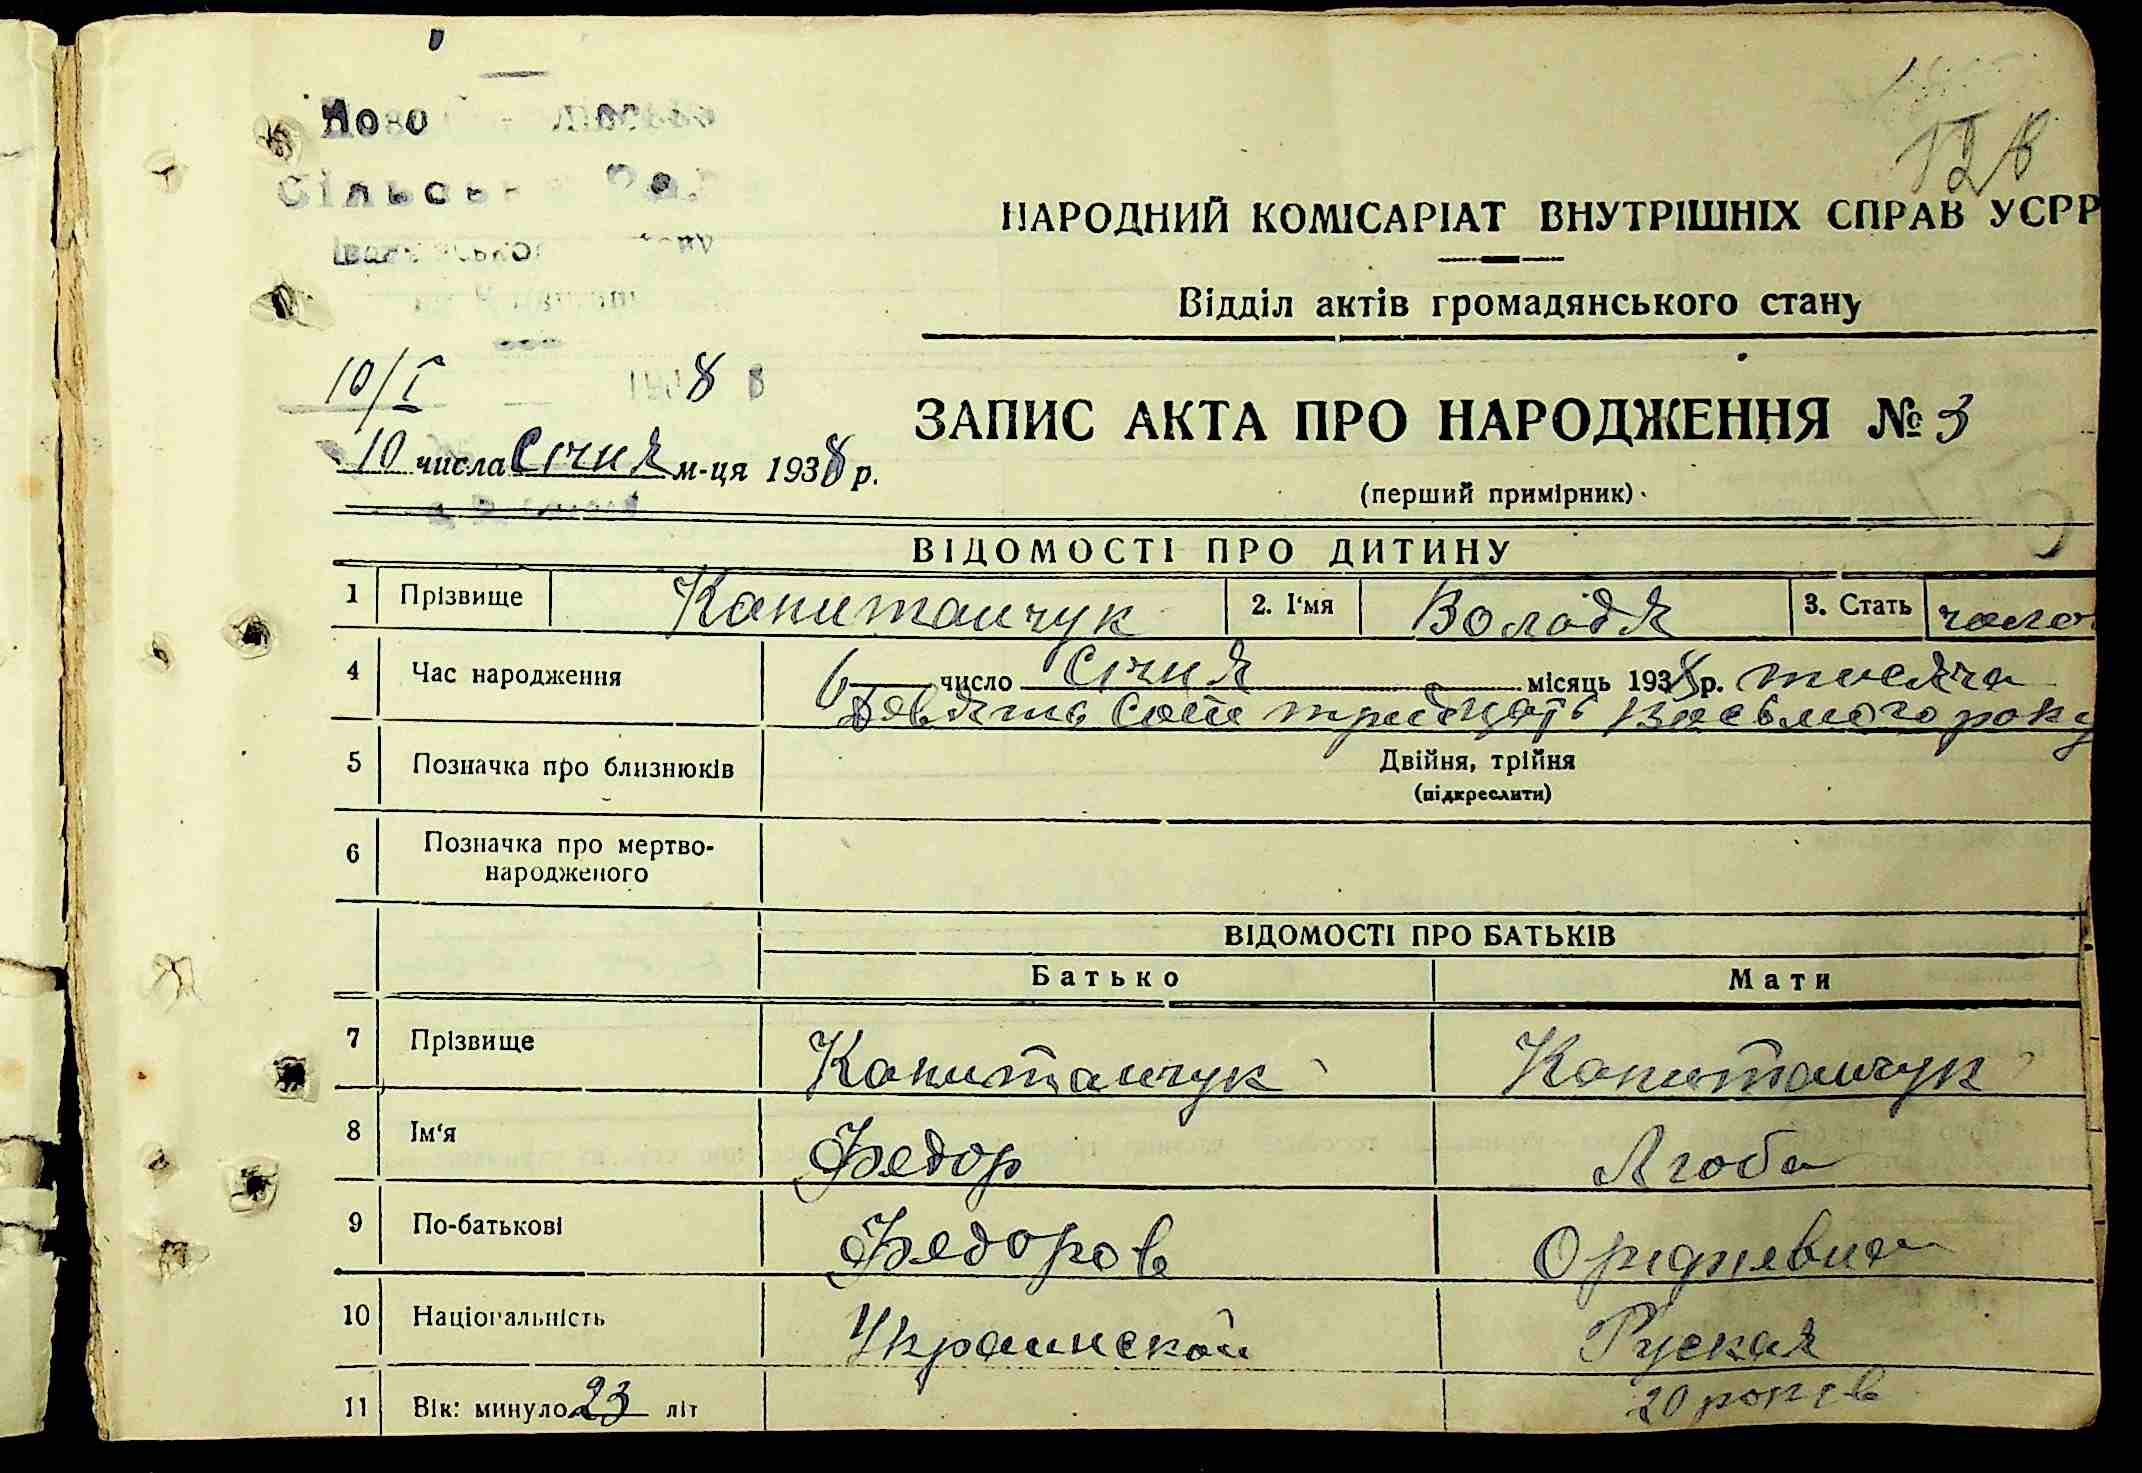 Сільськ
128
НАРОДНИЙ КОМІСАРІАТ ВНУТРІШНІХ СПРАВ УСРР
Відділ актів громадянського стану
10/I 1938
ЗАПИС АКТА ПРО НАРОДЖЕННЯ № 3
10 числа Січня м-ця 1938 р.
(перший примірник)
ВІДОМОСТІ ПРО ДИТИНУ
1 Прізвище Капитанчук 2. І'мя Володя 3. Стать чоло
4 Час народження 6 число Січня місяць 1938 р. тисяча
Девять сот тридцять Восьмого року
5 Позначка про близнюків Двійня, трійня
(підкреслити)
6 Позначка про мертво-
народженого
ВІДОМОСТІ ПРО БАТЬКІВ
Батько Мати
7 Прізвище Капитанчук Капитанчук
8 Ім'я Федор
9 По-батькові Федоров
10 Національність Украинской Руская
11 Вік: минуло 23 літ 20 років